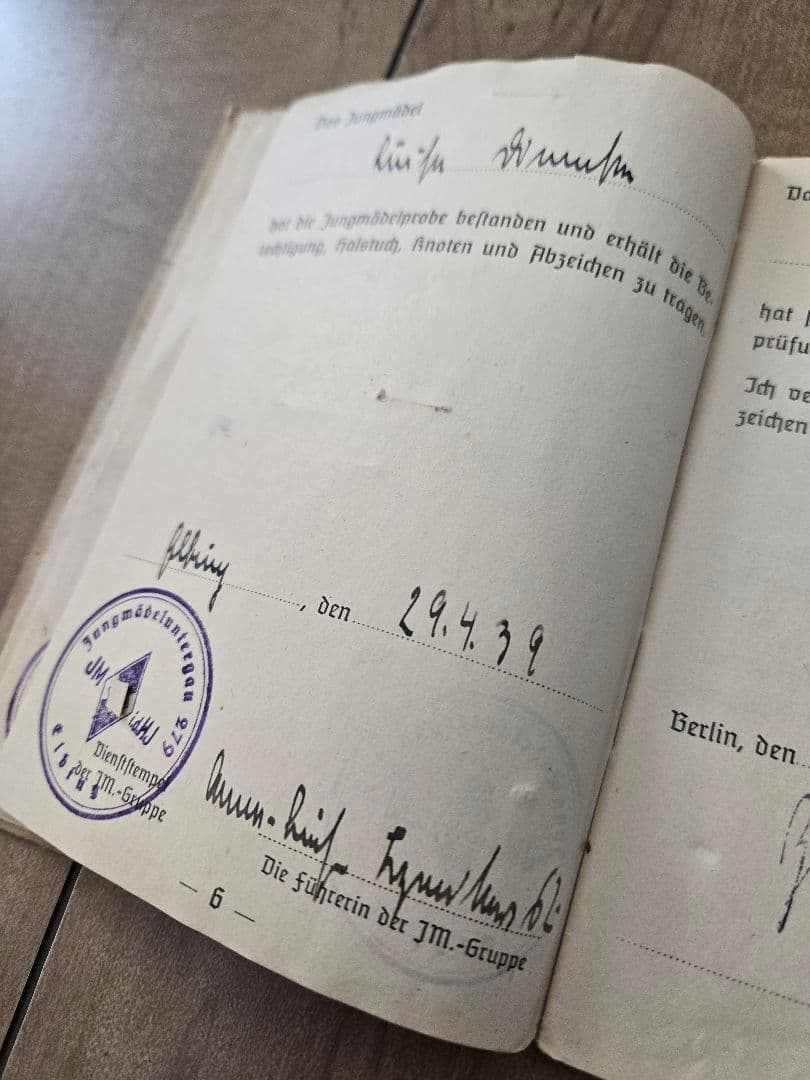 Das Jungmädel
Luise
hat die Jungmädelprobe bestanden und erhält die Be-
rechtigung, Halstuch, Knoten und Abzeichen zu tragen.
Elbing, den 29.4.39
Jungmädeluntergau 279
JM
i.d.HJ
Elbing
Dienststempel
der JM.-Gruppe
Die Führerin der JM.-Gruppe
— 6 —
hat
prüfu
Ich ve
zeichen
Berlin, den